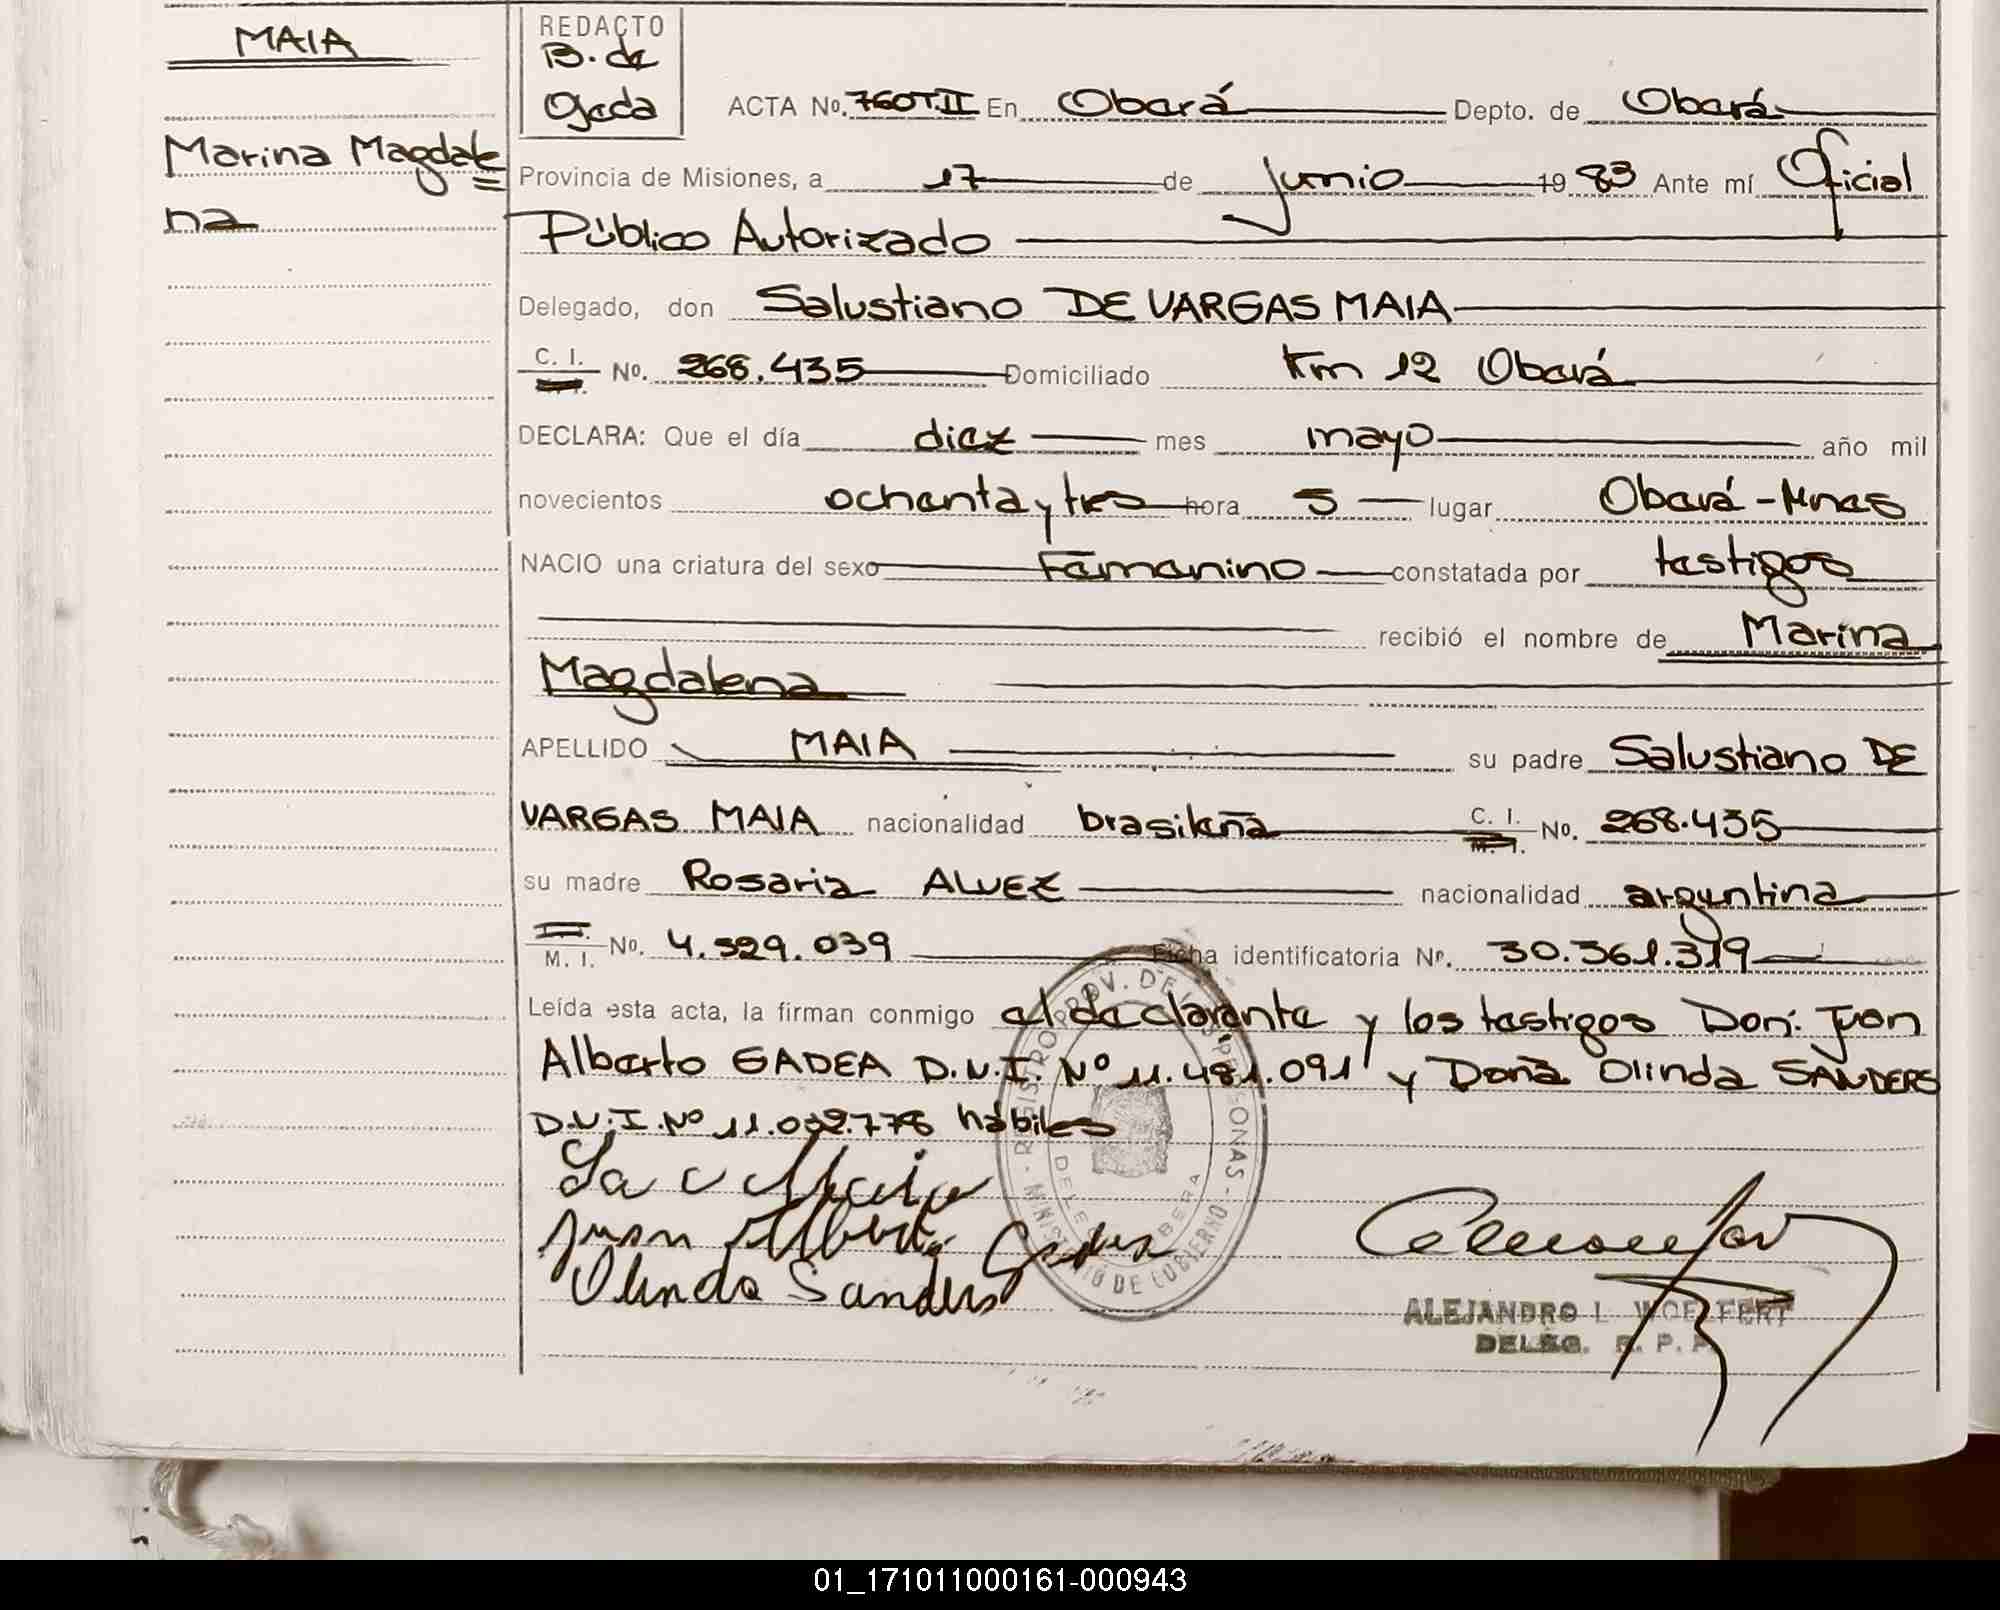 MAIA
Marina Magdale
na
REDACTO
B. de
Ojeda
ACTA No. 760T.II En Oberá Depto. de Oberá
Provincia de Misiones, a 17 de junio 1983 Ante mí Oficial
Público Autorizado
Delegado, don Salustiano DE VARGAS MAIA
C. I. No. 268.435 Domiciliado Km 12 Oberá
DECLARA: Que el día diez mes mayo año mil
novecientos ochenta y tres hora 5 lugar Oberá - Mnes
NACIO una criatura del sexo Femenino constatada por testigos
recibió el nombre de Marina
Magdalena
APELLIDO MAIA su padre Salustiano DE
VARGAS MAIA nacionalidad brasileña C. I. No. 268.435
su madre Rosaria ALVEZ nacionalidad argentina
M. I. No. 4.529.039 Ficha identificatoria Nº. 30.361.319
Leída esta acta, la firman conmigo el declarante y los testigos Don: Juan
Alberto GADEA D.N.I. Nº 11.481.091 y Doña Olinda SANDERS
D.N.I. Nº 11.032.778 hábiles
Maia
Juan Alberto Gadea
Olinda Sanders
REGISTRO PROV. DE LAS PERSONAS - MINISTERIO DE GOBIERNO -
DELEG. OBERA
ALEJANDRO L. WOELFERT
DELEG. R. P. P.
01_171011000161-000943